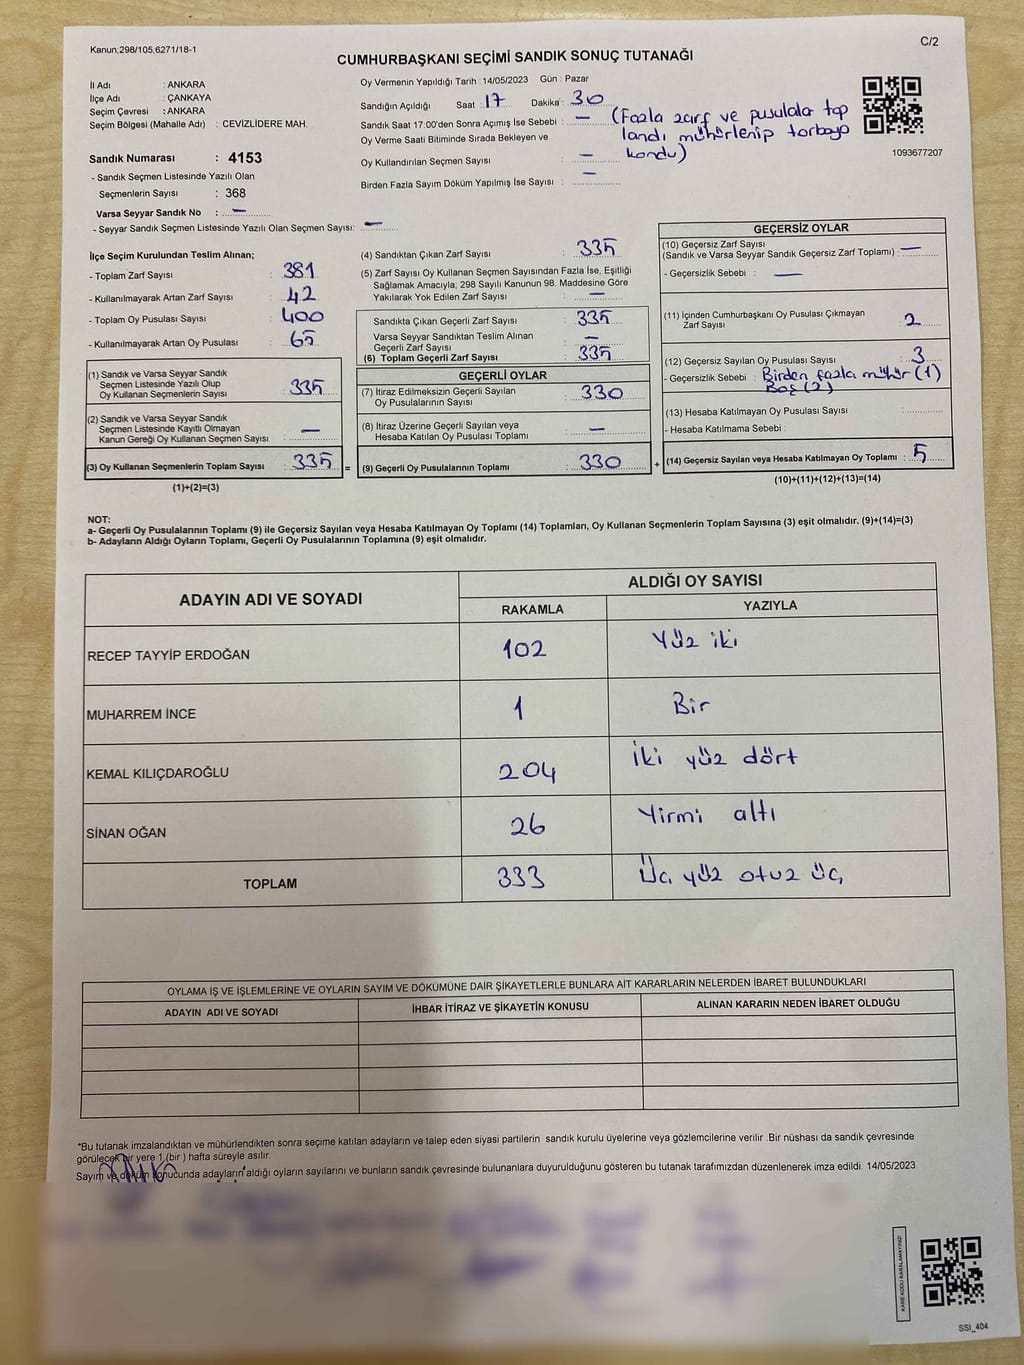 Kanun;298/105,6271/18-1
C/2
CUMHURBAŞKANI SEÇİMİ SANDIK SONUÇ TUTANAĞI
İl Adı : ANKARA
İlçe Adı : ÇANKAYA
Seçim Çevresi : ANKARA
Seçim Bölgesi (Mahalle Adı) : CEVİZLİDERE MAH.
Sandık Numarası : 4153
- Sandık Seçmen Listesinde Yazılı Olan
Seçmenlerin Sayısı : 368
Varsa Seyyar Sandık No : —
- Seyyar Sandık Seçmen Listesinde Yazılı Olan Seçmen Sayısı: —
Oy Vermenin Yapıldığı Tarih : 14/05/2023 Gün : Pazar
Sandığın Açıldığı Saat : 17 Dakika : 30
Sandık Saat 17:00'den Sonra Açımış İse Sebebi : —
Oy Verme Saati Bitiminde Sırada Bekleyen ve
Oy Kullandırılan Seçmen Sayısı : —
Birden Fazla Sayım Döküm Yapılmış İse Sayısı : —
(Fazla zarf ve pusulalar top
landı mühürlenip torbaya
kondu)
1093677207
İlçe Seçim Kurulundan Teslim Alınan;
- Toplam Zarf Sayısı : 381
- Kullanılmayarak Artan Zarf Sayısı : 42
- Toplam Oy Pusulası Sayısı : 400
- Kullanılmayarak Artan Oy Pusulası : 65
(1) Sandık ve Varsa Seyyar Sandık
Seçmen Listesinde Yazılı Olup
Oy Kullanan Seçmenlerin Sayısı : 335
(2) Sandık ve Varsa Seyyar Sandık
Seçmen Listesinde Kayıtlı Olmayan
Kanun Gereği Oy Kullanan Seçmen Sayısı : —
(3) Oy Kullanan Seçmenlerin Toplam Sayısı : 335 =
(1)+(2)=(3)
(4) Sandıktan Çıkan Zarf Sayısı : 335
(5) Zarf Sayısı Oy Kullanan Seçmen Sayısından Fazla İse, Eşitliği
Sağlamak Amacıyla; 298 Sayılı Kanunun 98. Maddesine Göre
Yakılarak Yok Edilen Zarf Sayısı : —
Sandıkta Çıkan Geçerli Zarf Sayısı : 335
Varsa Seyyar Sandıktan Teslim Alınan
Geçerli Zarf Sayısı : —
(6) Toplam Geçerli Zarf Sayısı : 335
GEÇERLİ OYLAR
(7) İtiraz Edilmeksizin Geçerli Sayılan
Oy Pusulalarının Sayısı : 330
(8) İtiraz Üzerine Geçerli Sayılan veya
Hesaba Katılan Oy Pusulası Toplamı : —
(9) Geçerli Oy Pusulalarının Toplamı : 330 +
GEÇERSİZ OYLAR
(10) Geçersiz Zarf Sayısı
(Sandık ve Varsa Seyyar Sandık Geçersiz Zarf Toplamı) : —
- Geçersizlik Sebebi : —
(11) İçinden Cumhurbaşkanı Oy Pusulası Çıkmayan
Zarf Sayısı : 2
(12) Geçersiz Sayılan Oy Pusulası Sayısı : 3
- Geçersizlik Sebebi : Birden fazla mühür (1)
Boş (2)
(13) Hesaba Katılmayan Oy Pusulası Sayısı :
- Hesaba Katılmama Sebebi :
(14) Geçersiz Sayılan veya Hesaba Katılmayan Oy Toplamı : 5
(10)+(11)+(12)+(13)=(14)
NOT:
a- Geçerli Oy Pusulalarının Toplamı (9) ile Geçersiz Sayılan veya Hesaba Katılmayan Oy Toplamı (14) Toplamları, Oy Kullanan Seçmenlerin Toplam Sayısına (3) eşit olmalıdır. (9)+(14)=(3)
b- Adayların Aldığı Oyların Toplamı, Geçerli Oy Pusulalarının Toplamına (9) eşit olmalıdır.
ADAYIN ADI VE SOYADI
ALDIĞI OY SAYISI
RAKAMLA YAZIYLA
RECEP TAYYİP ERDOĞAN 102 Yüz iki
MUHARREM İNCE 1 Bir
KEMAL KILIÇDAROĞLU 204 İki yüz dört
SİNAN OĞAN 26 Yirmi altı
TOPLAM 333 Üç yüz otuz üç
OYLAMA İŞ VE İŞLEMLERİNE VE OYLARIN SAYIM VE DÖKÜMÜNE DAİR ŞİKAYETLERLE BUNLARA AİT KARARLARIN NELERDEN İBARET BULUNDUKLARI
ADAYIN ADI VE SOYADI İHBAR İTİRAZ VE ŞİKAYETİN KONUSU ALINAN KARARIN NEDEN İBARET OLDUĞU
*Bu tutanak imzalandıktan ve mühürlendikten sonra seçime katılan adayların ve talep eden siyasi partilerin sandık kurulu üyelerine veya gözlemcilerine verilir .Bir nüshası da sandık çevresinde
görülecek bir yere 1 (bir ) hafta süreyle asılır.
Sayım ve döküm sonucunda adayların aldığı oyların sayılarını ve bunların sandık çevresinde bulunanlara duyurulduğunu gösteren bu tutanak tarafımızdan düzenlenerek imza edildi. 14/05/2023
KARE KODU KARALAMAYINIZ!
SSİ_404